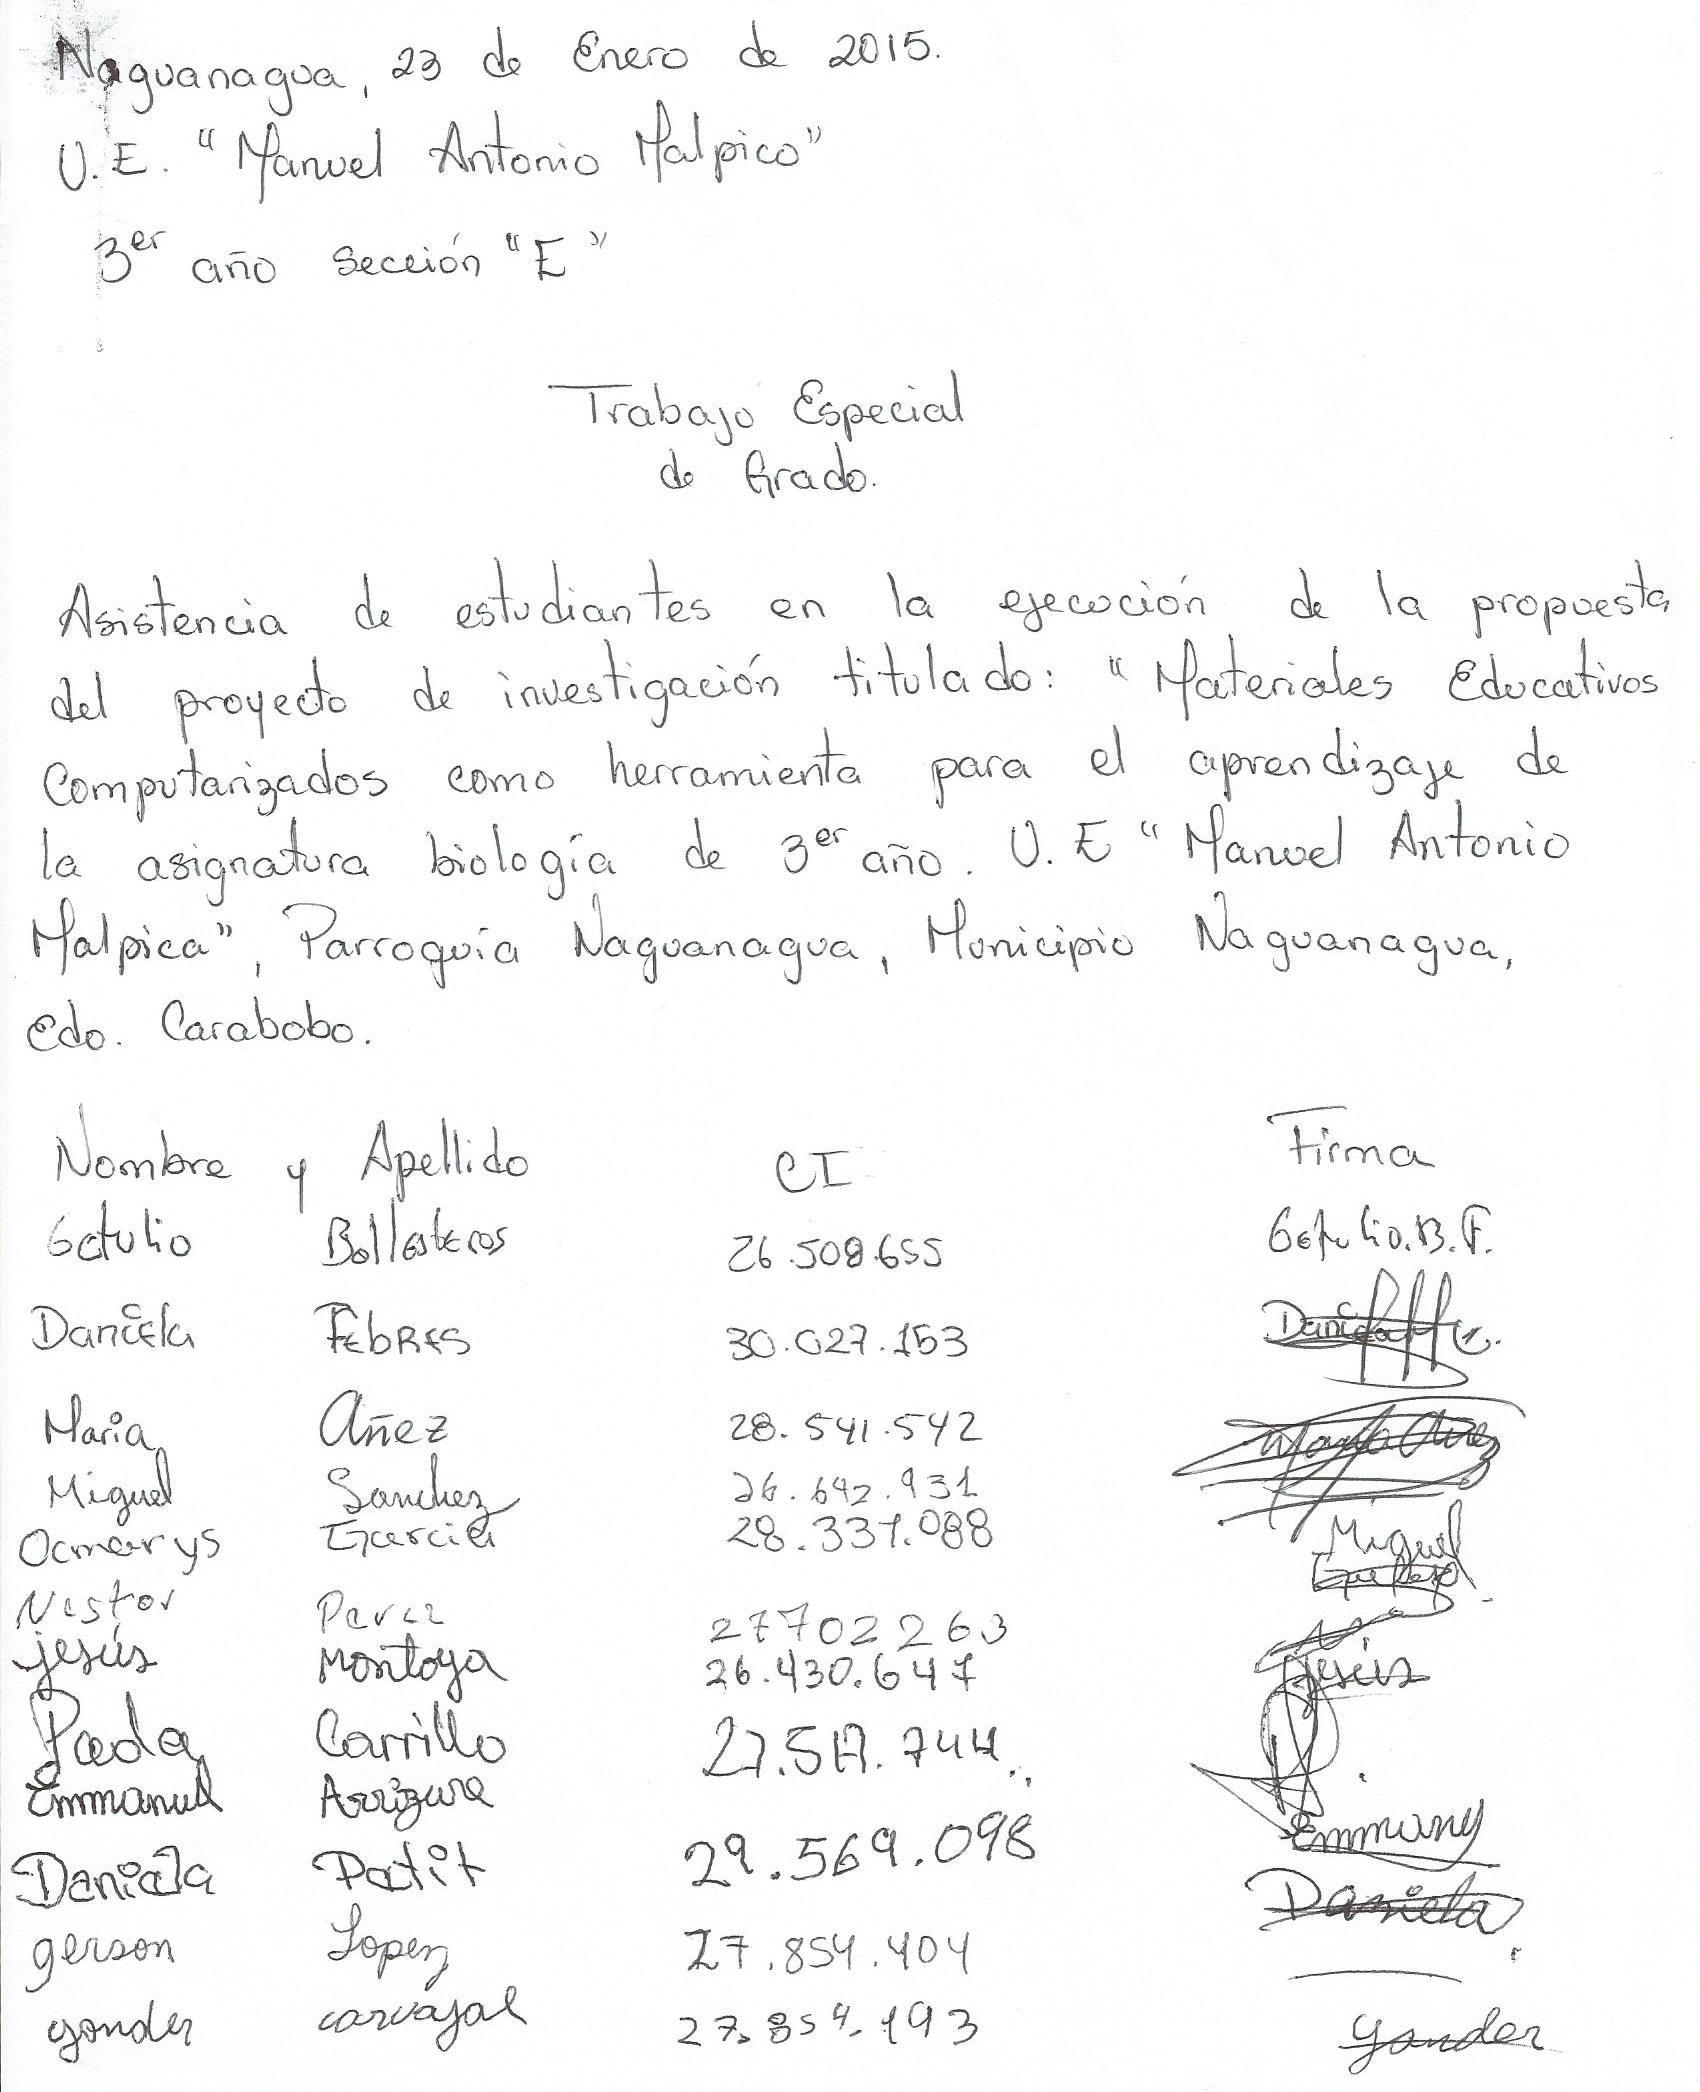 Naguanagua, 23 de Enero de 2015.
U.E. "Manuel Antonio Malpico"
3er año sección "E"
Trabajo Especial
de Grado.
Asistencia de estudiantes en la ejecución de la propuesta
del proyecto de investigación titulado: "Materiales Educativos
Computarizados como herramienta para el aprendizaje de
la asignatura biología de 3er año. U.E "Manuel Antonio
Malpica", Parroquía Naguanagua, Municipio Naguanagua,
Edo. Carabobo.
Nombre y Apellido CI Firma
Getulio Ballesteros 26.508.655 Getulio.B.F.
Daniela Febres 30.027.153 Daniela
Maria Añez 28.541.542 Maria Añez
Miguel Sanchez 26.642.931 Miguel
Ocmarys Garcia 28.337.088
Nestor Perez 27702263
jesús Montoya 26.430.647 jesús
Paola Carrillo 27.517.744.
Emmanuel Arrizure Emmany
Daniela Patit 29.569.098 Daniela
gerson Lopez 27.854.404
yonder carvajal 27.854.193 yonder